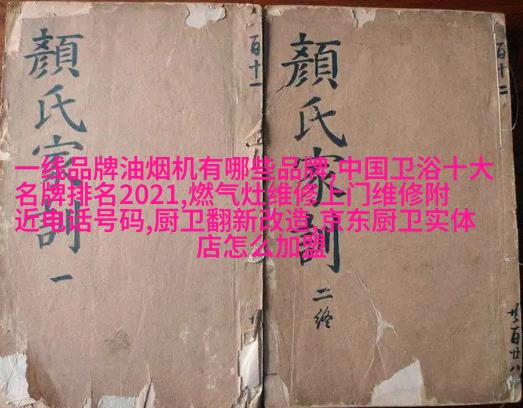 顔氏家訓
一
百十一
顔氏家訓
二終
百十二
一线品牌油烟机有哪些品牌,中国卫浴十大
名牌排名2021,燃气灶维修上门维修附
近电话号码,厨卫翻新改造,京东厨卫实体
店怎么加盟